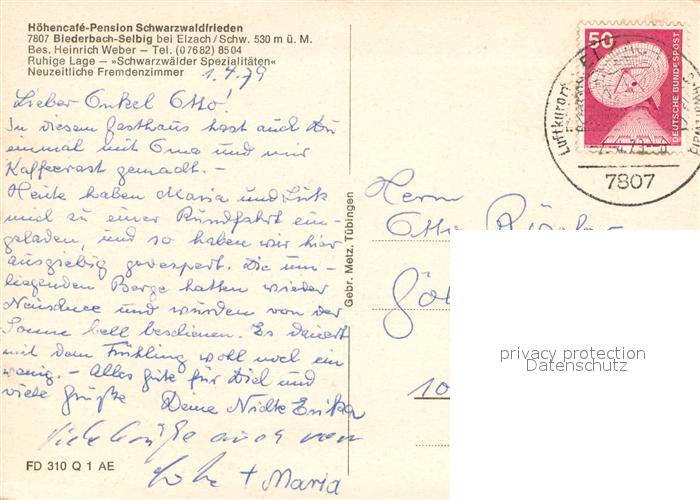 Höhencafé-Pension Schwarzwaldfrieden
7807 Biederbach-Selbig bei Elzach/Schw. 530 m ü. M.
Bes. Heinrich Weber – Tel. (07682) 8504
Ruhige Lage – »Schwarzwälder Spezialitäten«
Neuzeitliche Fremdenzimmer
1.4.79
Lieber Onkel Otto!
In diesem Gasthaus hast auch Du
einmal mit Oma und mir
Kaffeerast gemacht. –
Heute haben Maria und
mich zu einer Rundfahrt ein-
geladen, und so haben wir hier
ausgiebig gevespert. Die um-
liegenden Berge hatten wieder
Neuschnee und wurden von der
Sonne hell beschienen. Es dauert
mit dem Frühling wohl noch ein
wenig. – Alles gute für Dich und
viele Grüße Deine Nichte Erika
Viele Grüße auch von
+ Maria
FD 310 Q 1 AE
Gebr. Metz, Tübingen
50
DEUTSCHE BUNDESPOST
Luftkurort
4.79
7807
Herrn
Otto
10
privacy protection
Datenschutz